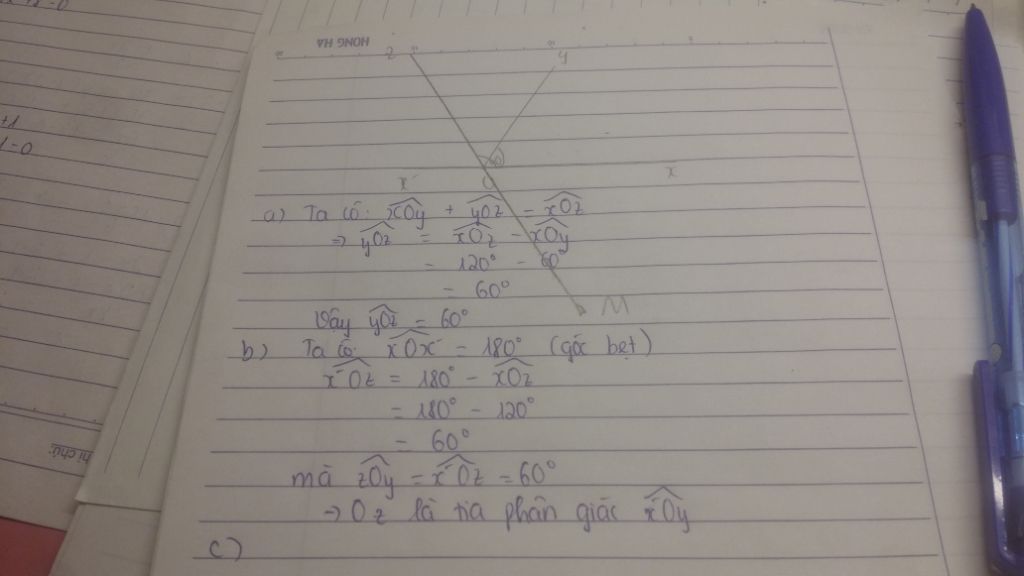 HONG HA
z
y
x
x'
O
+1
1=0
a) Ta có: xOy + yOz = xOz
=> yOz = xOz - xOy
= 120° - 60°
= 60°
M
Vậy yOz = 60°
b) Ta có: xOx' = 180° (góc bẹt)
x'Oz = 180° - xOz
= 180° - 120°
= 60°
mà zOy = x'Oz = 60°
→ Oz là tia phân giác x'Oy
c)